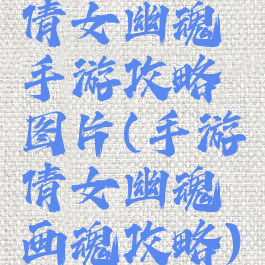 倩女幽魂
手游攻略
图片(手游
倩女幽魂
画魂攻略)